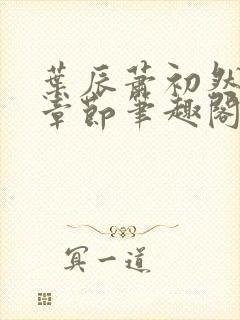 葉辰蕭初然
章節筆趣閣
冥一道